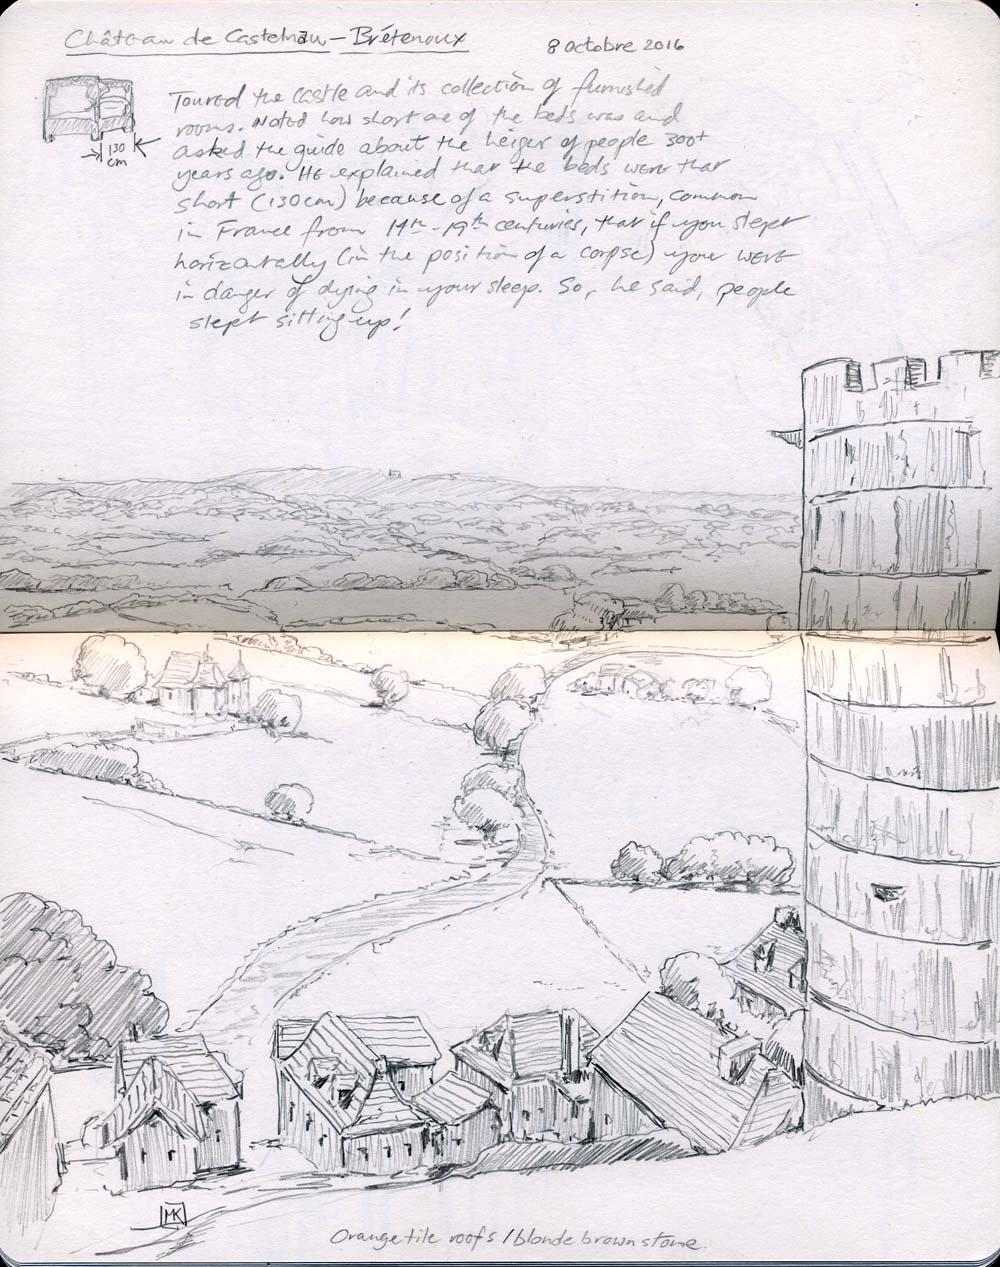 Château de Castelnau - Brétenoux
8 Octobre 2016
130
cm
Toured the castle and its collection of furnished
rooms. Noted how short one of the beds was and
asked the guide about the heigh of people 300+
years ago. He explained that the beds were that
short (130cm) because of a superstition, common
in France from 14th-19th centuries, that if you slept
horizontally (in the position of a corpse) your were
in danger of dying in your sleep. So, he said, people
slept sitting up!
MK
Orange tile roofs / blonde brown stone.